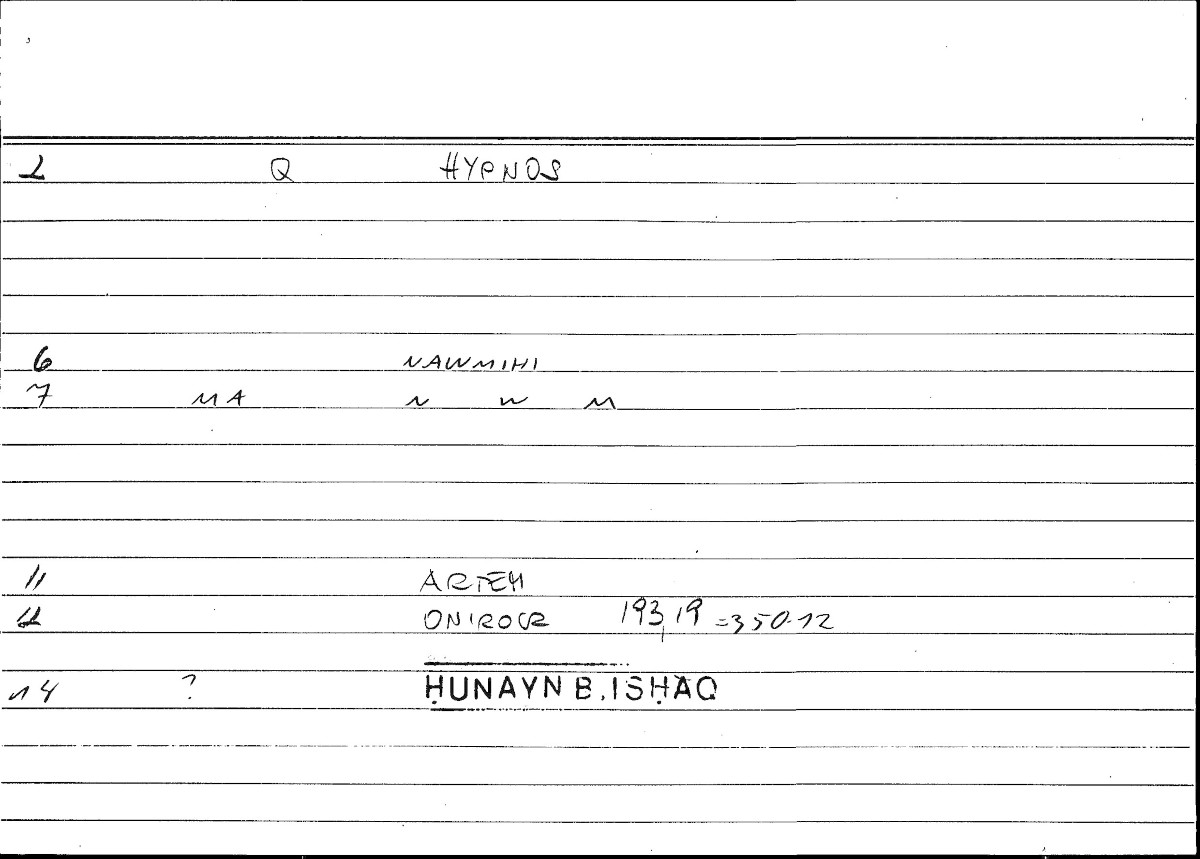 1 Q HYPNOS
6 NAWMIHI
7 MA N W M
11 ARTEM
12 ONIROCR 193,19 =350.12
14 ? ḤUNAYN B. ISḤAQ